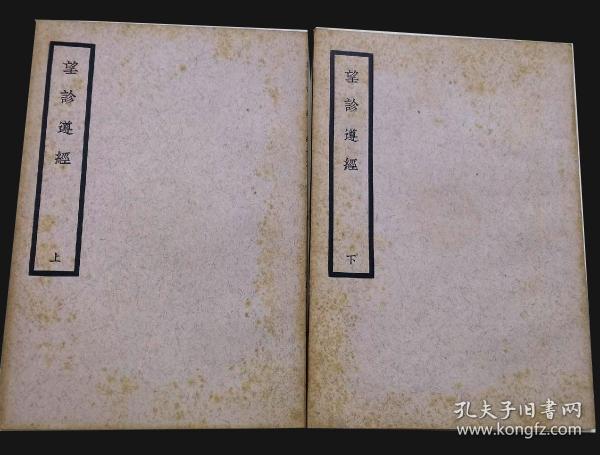 望診遵經
上
望診遵經
下
孔夫子旧書网
www.kongfz.com